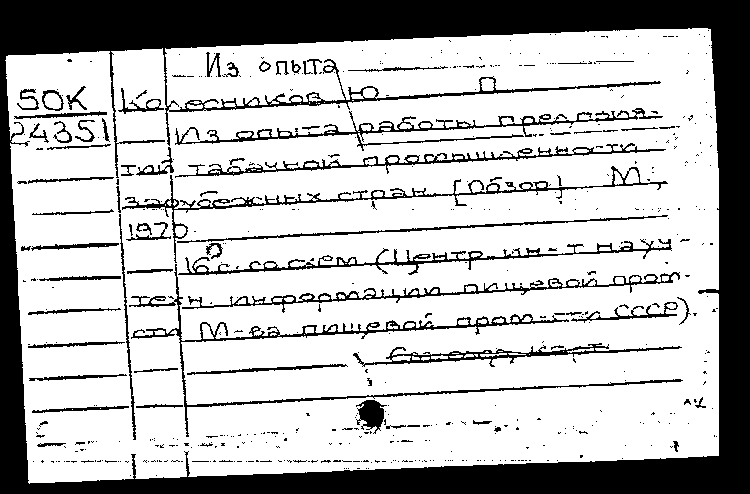 Из опыта
50К Колесников, Ю. П
24351 Из опыта работы предприя-
тий табачной промышленности
зарубежных стран. [Обзор] М.,
1970
16 с. со схем. (Центр. ин-т науч-
техн. информации пищевой пром-
сти М-ва пищевой пром-сти СССР).
См. след. карт.